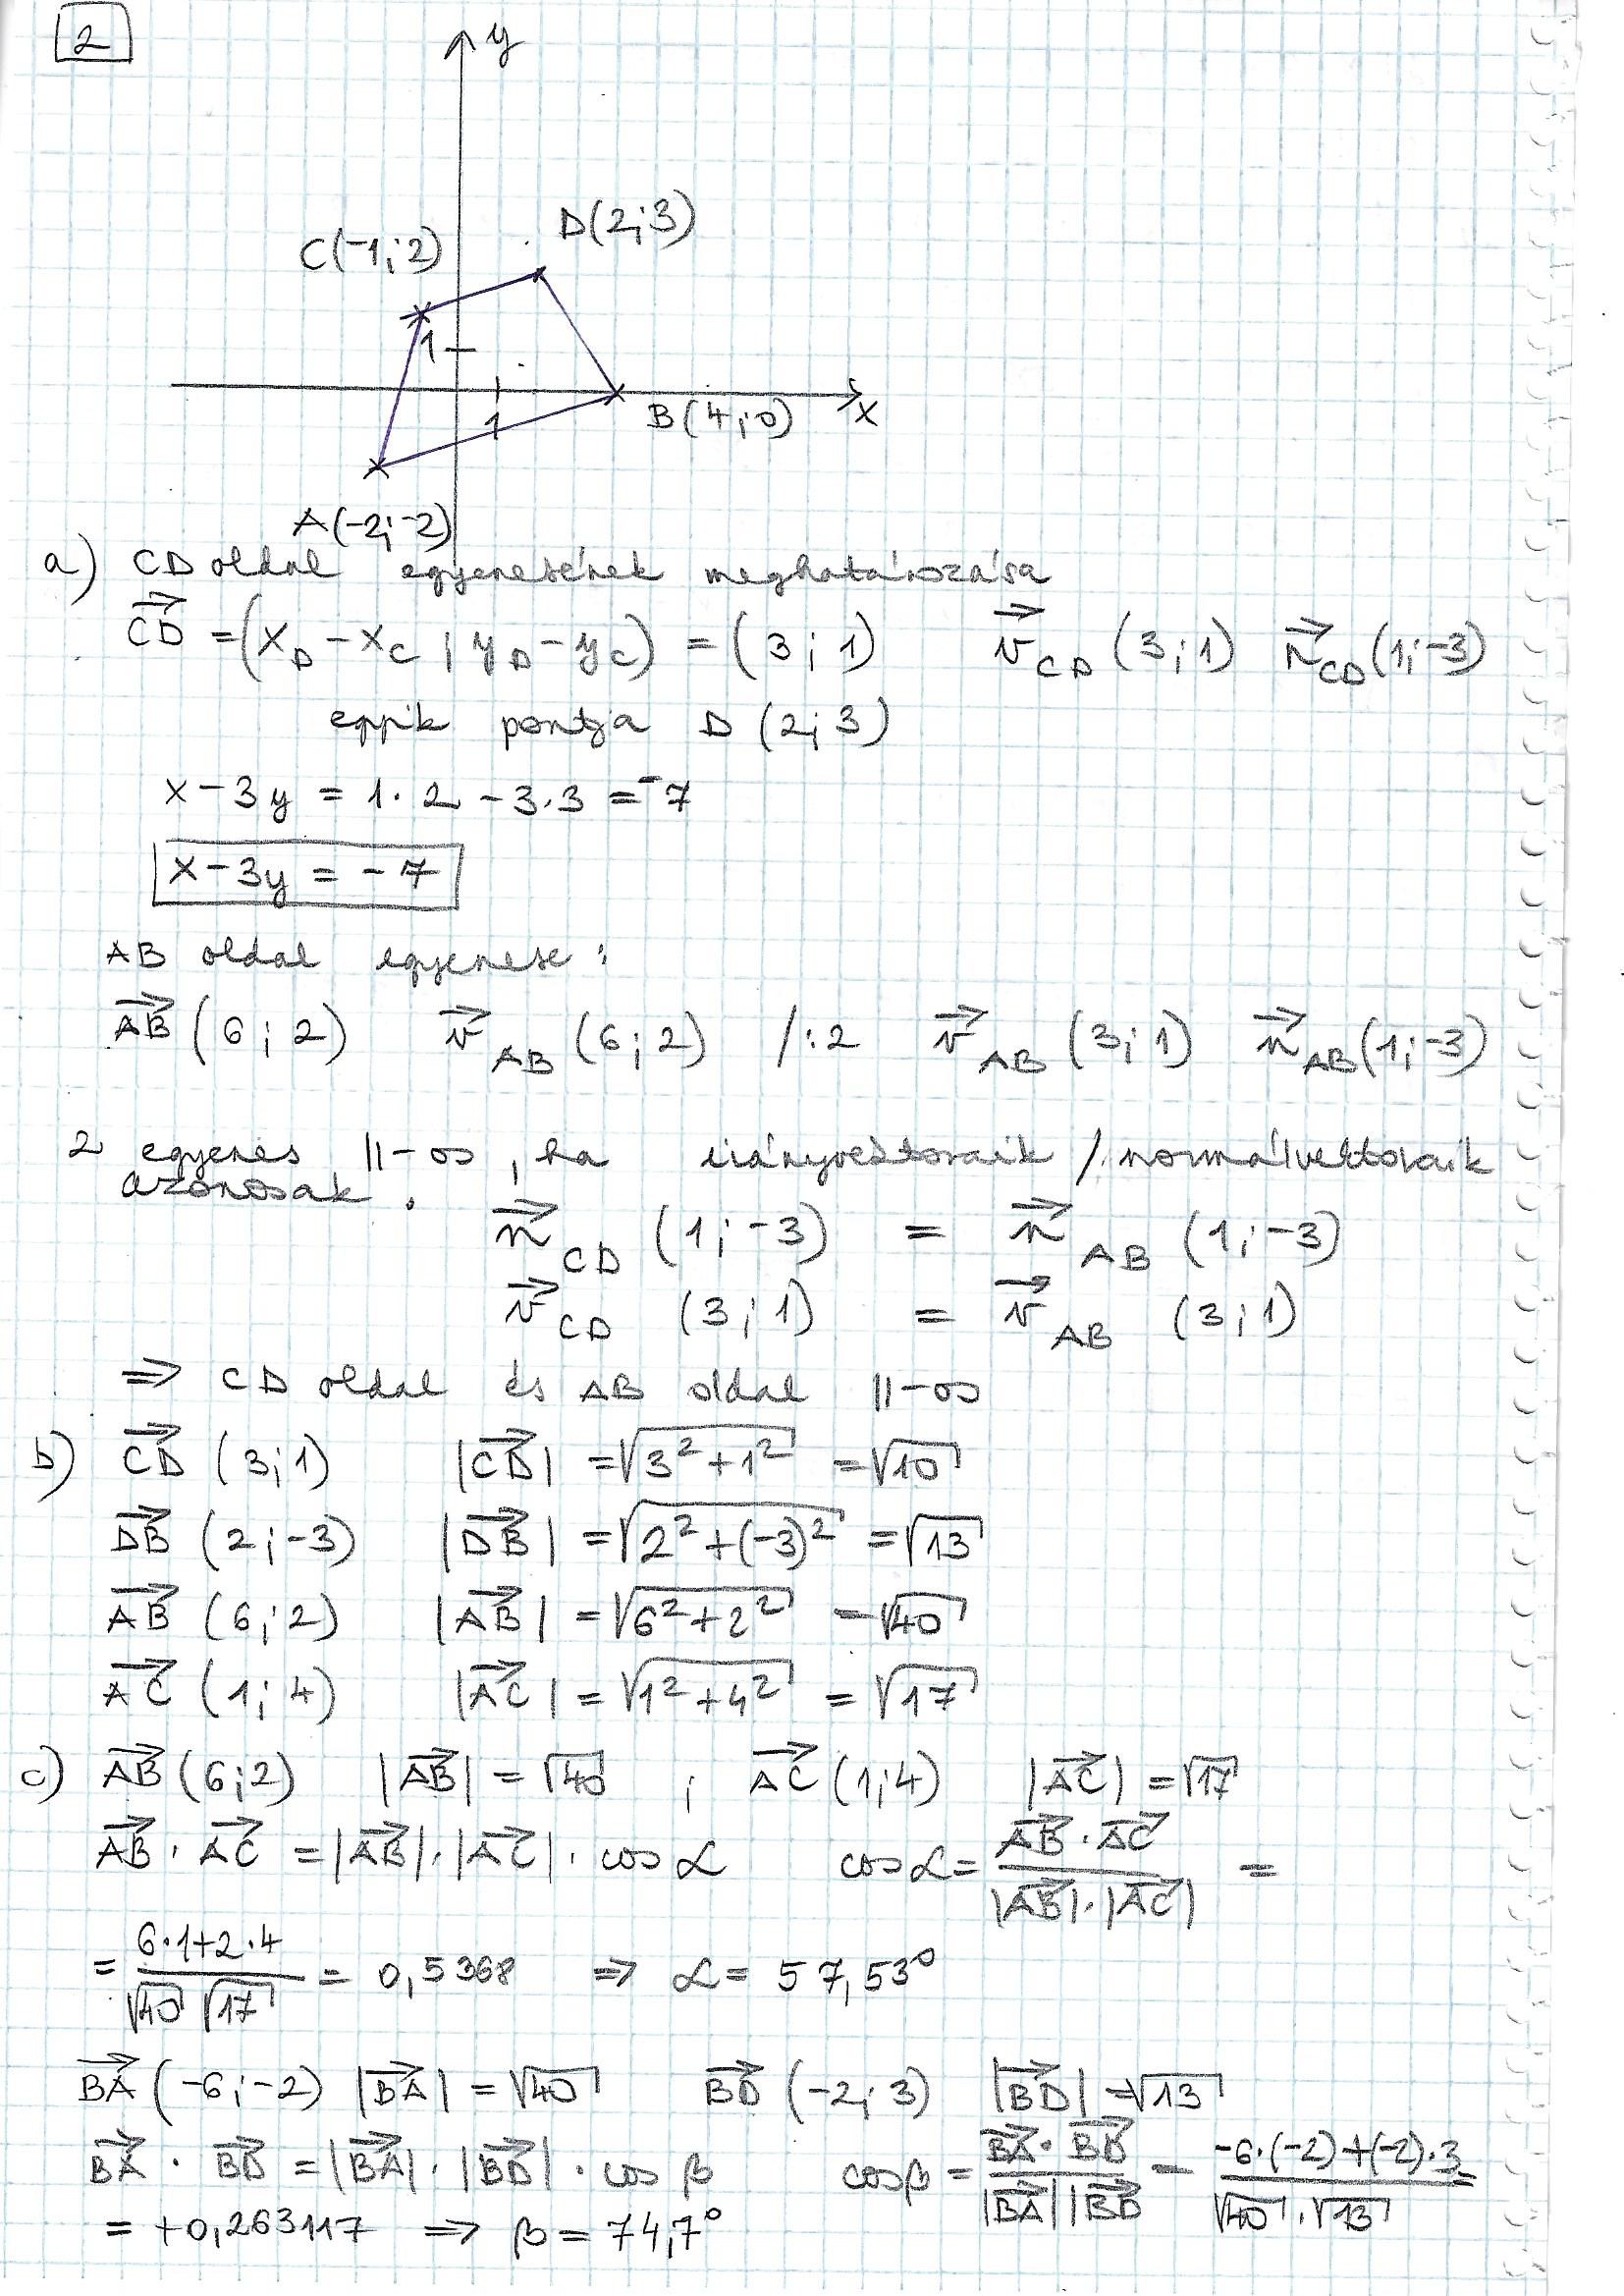 2
y
D(2;3)
C(-1;2)
1
1
B(4;0)
x
A(-2;-2)
a) CD oldal egyenesének meghatározása
CD = (x_D - x_C ; y_D - y_C) = (3;1) v_CD (3;1) n_CD (1;-3)
egyik pontja D (2;3)
x - 3y = 1·2 - 3·3 = -7
x - 3y = -7
AB oldal egyenese:
AB (6;2) v_AB (6;2) /:2 v_AB (3;1) n_AB (1;-3)
2 egyenes ||-os, ha irányvektoraik / normálvektoraik
azonosak.
n_CD (1;-3) = n_AB (1;-3)
v_CD (3;1) = v_AB (3;1)
⇒ CD oldal és AB oldal ||-os
b) CD (3;1) |CD| = √(3²+1²) = √10
DB (2;-3) |DB| = √(2²+(-3)²) = √13
AB (6;2) |AB| = √(6²+2²) = √40
AC (1;4) |AC| = √(1²+4²) = √17
c) AB (6;2) |AB| = √40 ; AC (1;4) |AC| = √17
AB · AC = |AB|·|AC| · cos α cos α = AB·AC / |AB|·|AC| =
= 6·1+2·4 / √40 √17 = 0,5368 ⇒ α = 57,53°
BA (-6;-2) |BA| = √40 BD (-2;3) |BD| = √13
BA · BD = |BA| · |BD| · cos β cos β = BA·BD / |BA||BD| = -6·(-2)+(-2)·3 / √40·√13 =
= +0,263117 ⇒ β = 74,7°